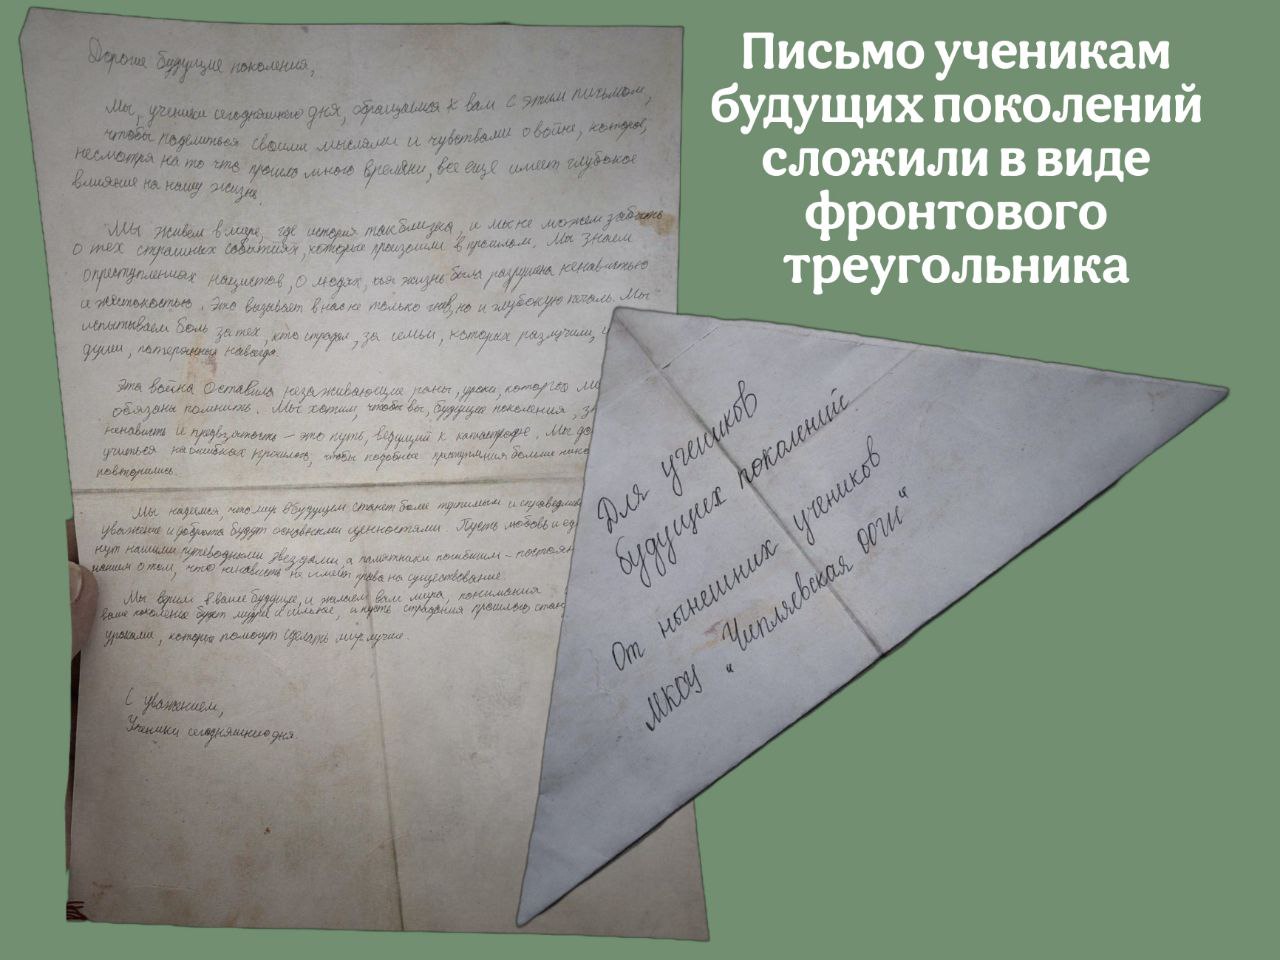 Письмо ученикам
будущих поколений
сложили в виде
фронтового
треугольника
Дорогие будущие поколения,
Мы, ученики сегодняшнего дня, обращаемся к вам с этим письмом,
чтобы поделиться своими мыслями и чувствами о войне, которая,
несмотря на то что прошло много времени, все еще имеет глубокое
влияние на нашу жизнь.
Мы живем в мире, где история так близка, и мы не можем забыть
о тех страшных событиях, которые произошли в прошлом. Мы знаем
о преступлениях нацистов, о людях, чья жизнь была разрушена ненавистью
и жестокостью. Это вызывает в нас не только гнев, но и глубокую печаль. Мы
испытываем боль за тех, кто страдал, за семьи, которых разлучили, и
души, потерянные навсегда.
Эта война оставила незаживающие раны, уроки, которые
обязаны помнить. Мы хотим, чтобы вы, будущие поколения,
ненависть и предвзятость – это путь, ведущий к катастрофе. Мы
учиться на ошибках прошлого, чтобы подобные преступления больше
повторились.
Мы надеемся, что мир в будущем станет более терпимым и
уважение и доброта будут основными ценностями. Пусть любовь и
нут нашими путеводными звездами, а памятники погибшим –
нием о том, что ненависть не имеет права на существование.
Мы верим в ваше будущее, и желаем вам мира, понимания
ваше поколение будет мудрее и сильнее, и пусть страдания прошлого
уроками, которые помогут сделать мир лучше.
С уважением,
Ученики сегодняшнего дня.
Для учеников
будущих поколений
От нынешних учеников
МКОУ "Чипляевская ООШ"